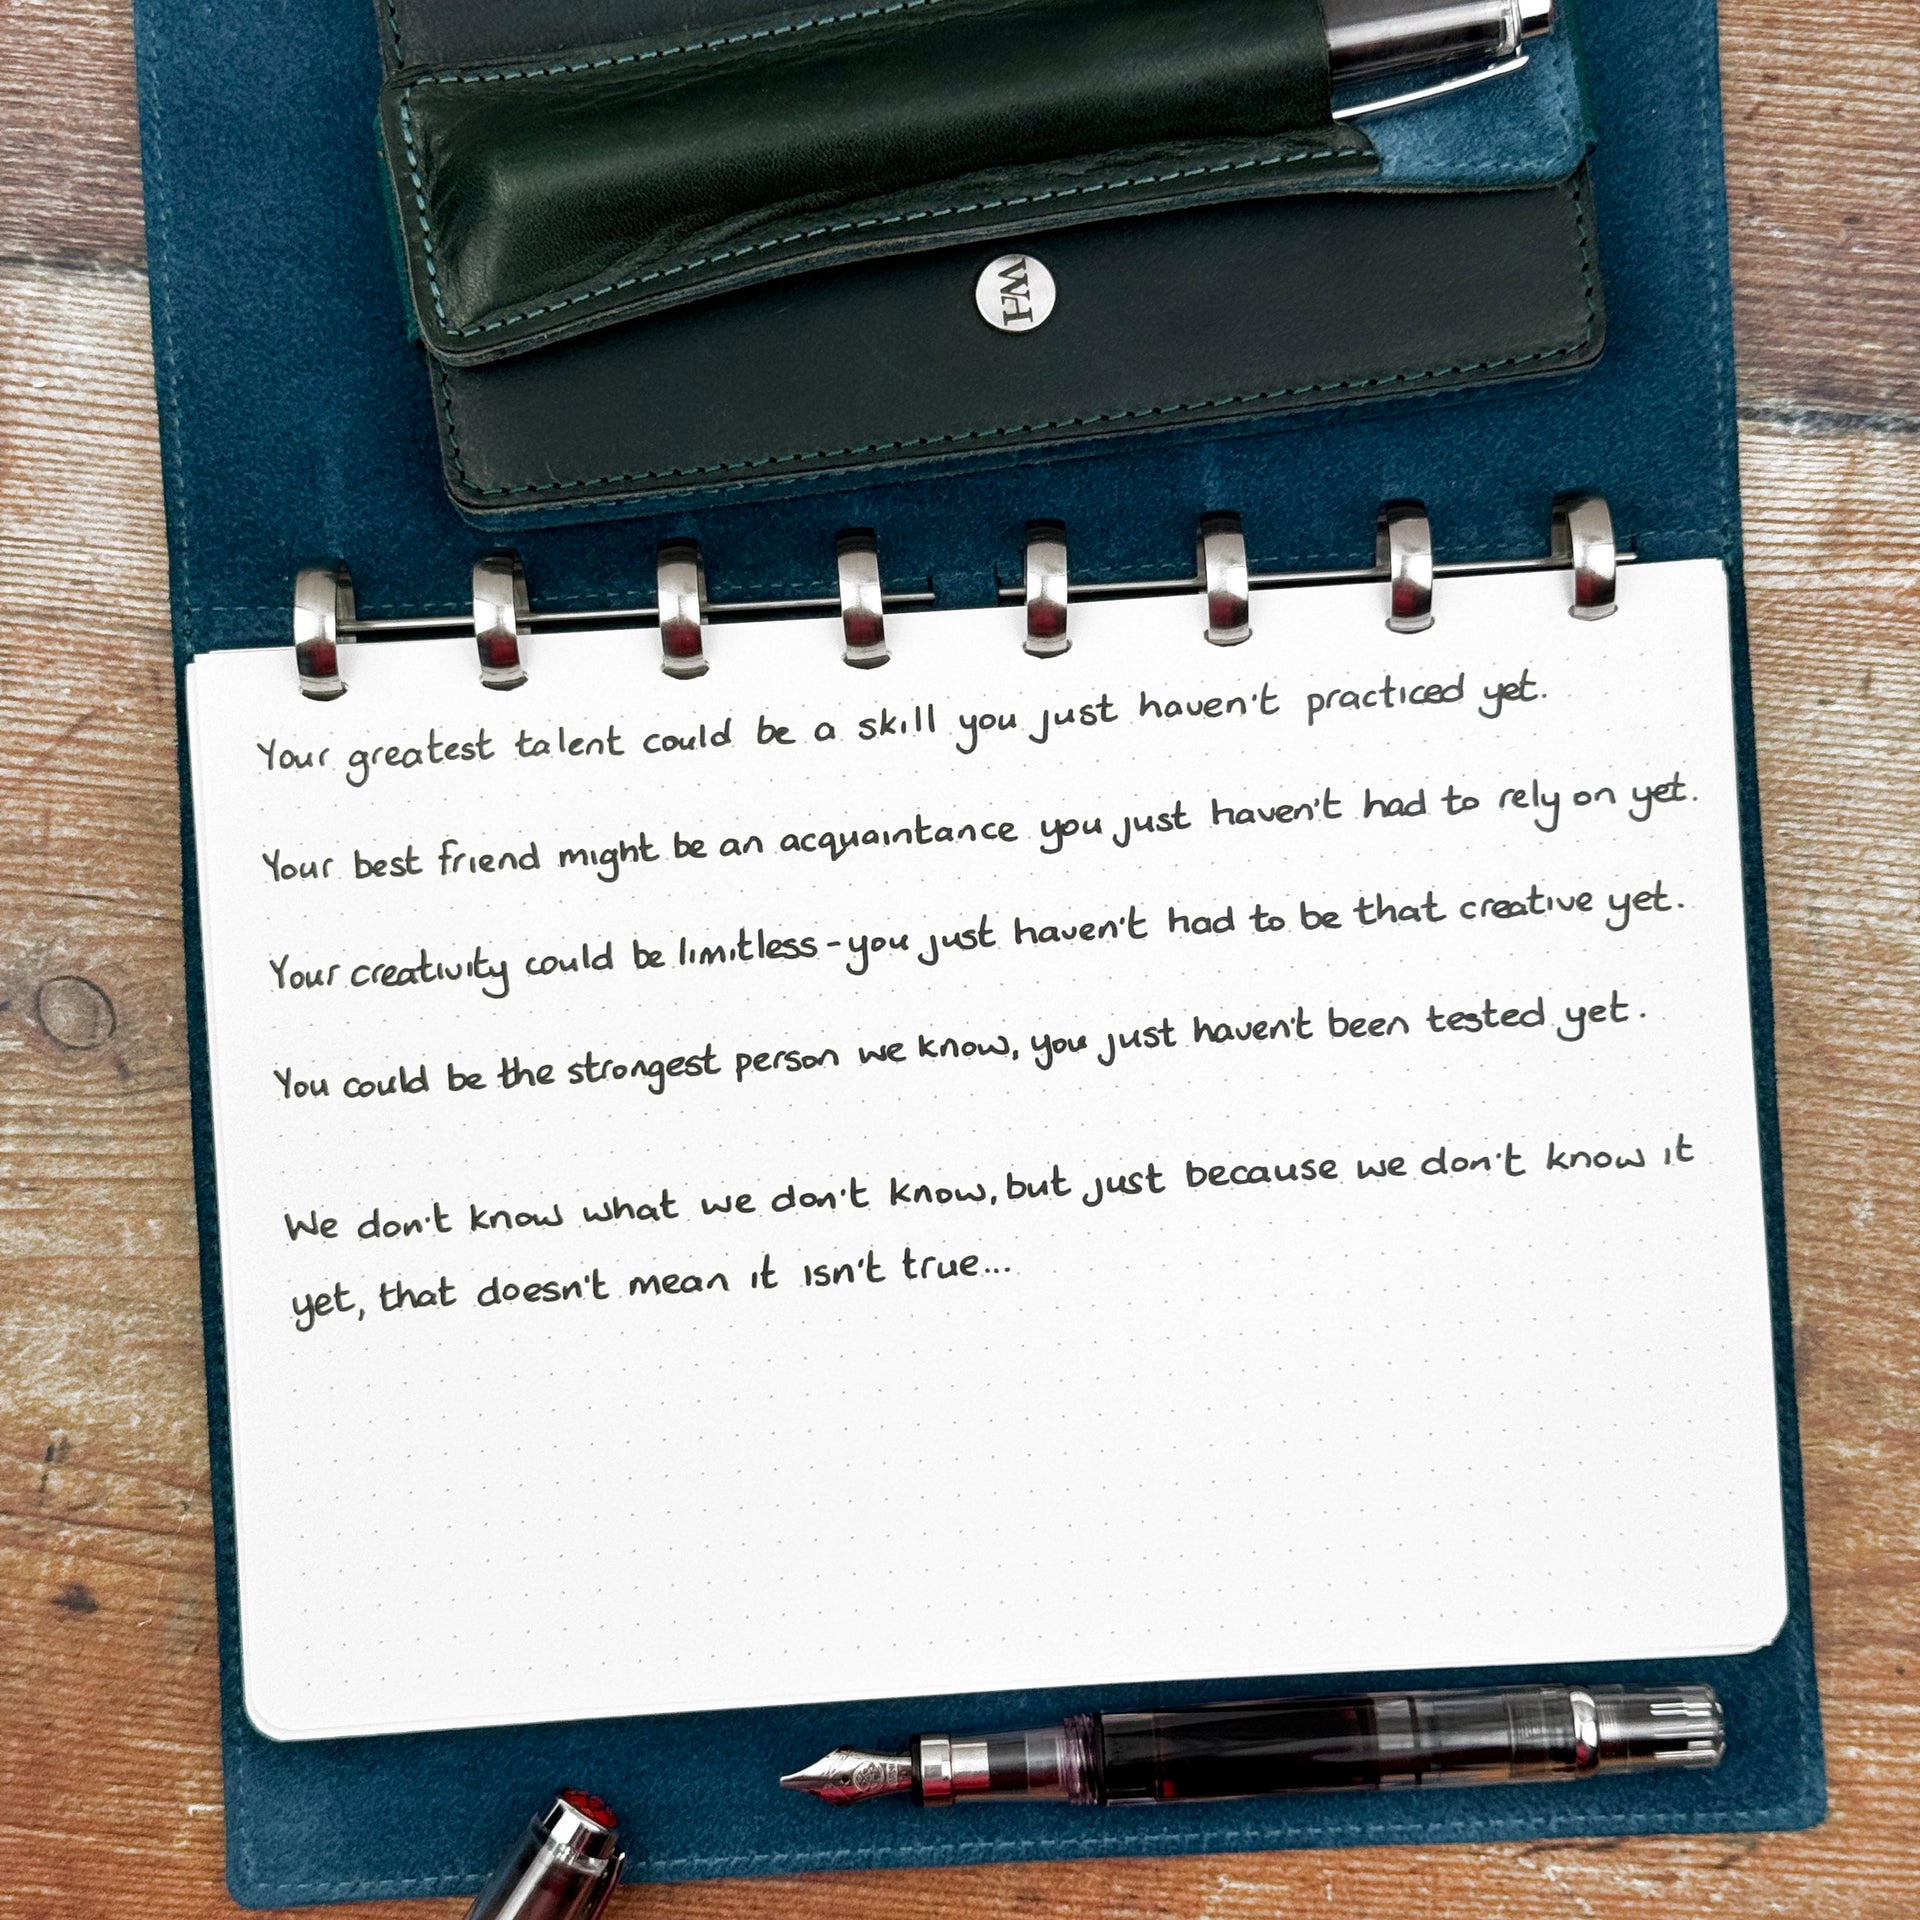 WH
Your greatest talent could be a skill you just haven't practiced yet.
Your best friend might be an acquaintance you just haven't had to rely on yet.
Your creativity could be limitless - you just haven't had to be that creative yet.
You could be the strongest person we know, you just haven't been tested yet.
We don't know what we don't know, but just because we don't know it
yet, that doesn't mean it isn't true...